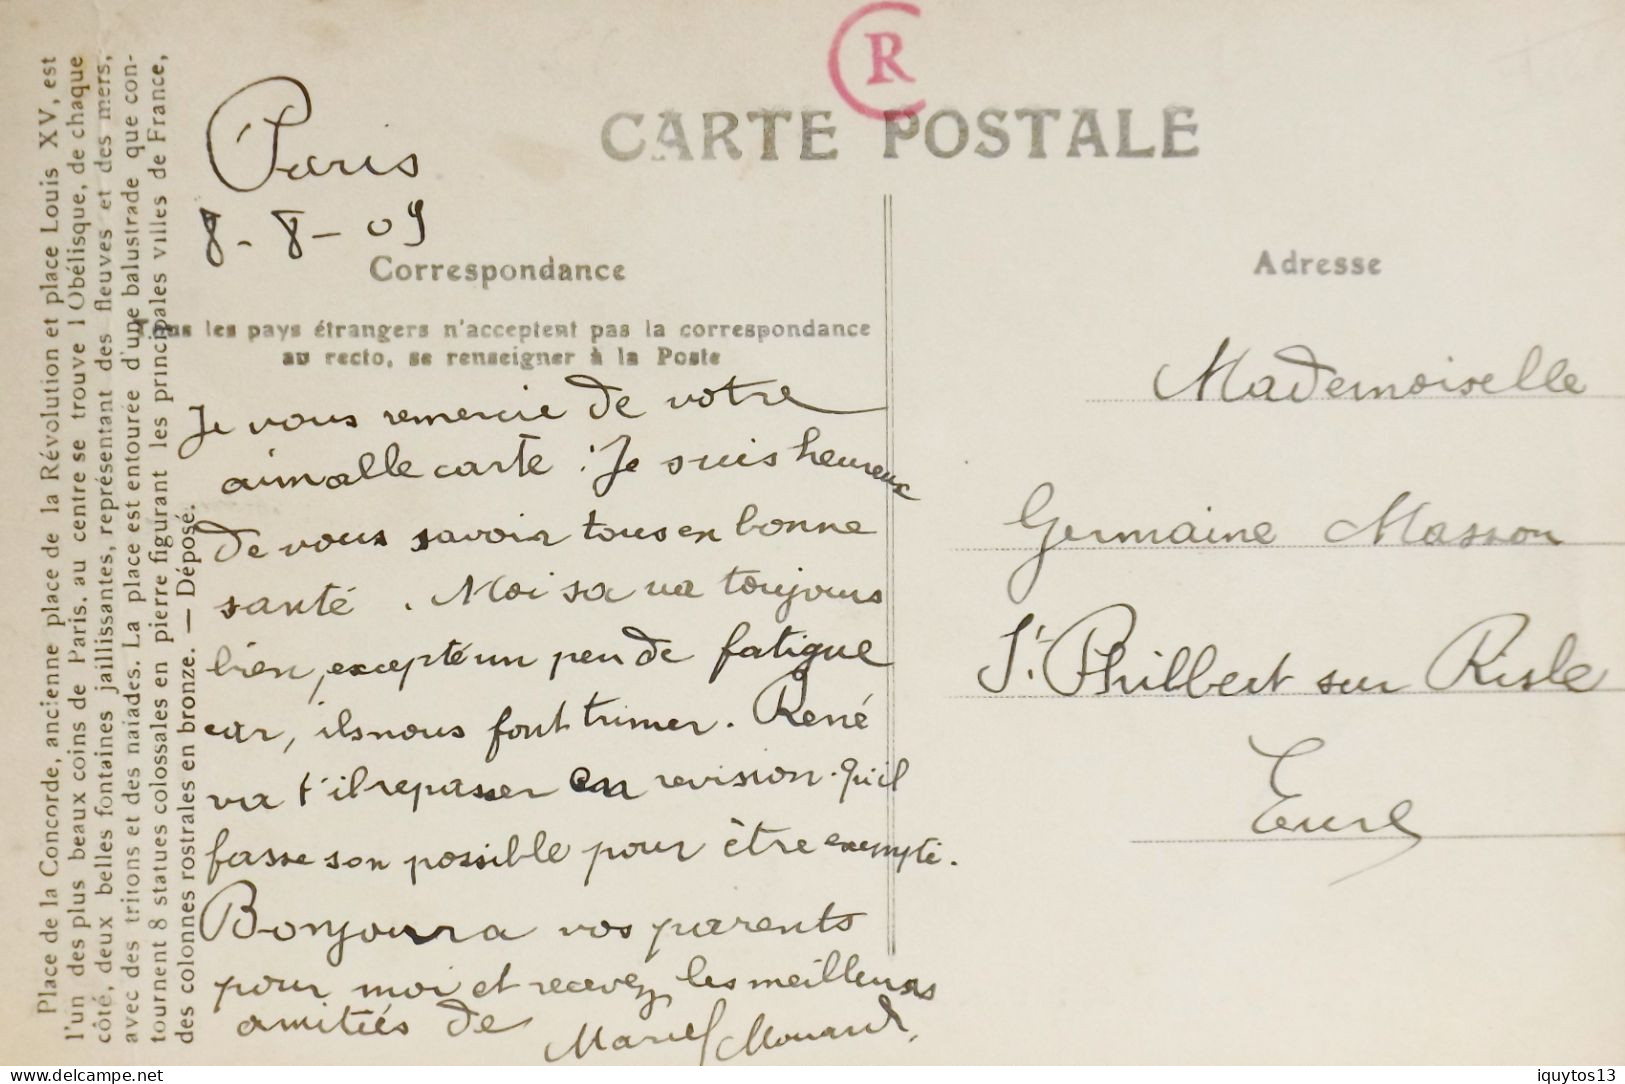 R
CARTE POSTALE
Paris
8-8-09
Correspondance
Tous les pays étrangers n'acceptent pas la correspondance
au recto, se renseigner à la Poste
Je vous remercie de votre
aimable carte : Je suis heureux
de vous savoir tous en bonne
santé. Moi sa va toujours
bien, excepté un peu de fatigue
car, ils nous font trimer. René
va t'il repasser en revision. Qu'il
fasse son possible pour être exempté.
Bonjour a vos parents
pour moi et recevez les meilleures
amitiés de
Marcel Mouard.
Adresse
Mademoiselle
Germaine Masson
St. Philbert sur Risle
Eure
Place de la Concorde, ancienne place de la Révolution et place Louis XV, est
l'un des plus beaux coins de Paris, au centre se trouve l Obélisque, de chaque
côté, deux belles fontaines jaillissantes, représentant des fleuves et des mers,
avec des tritons et des naiades. La place est entourée d'une balustrade que con-
tournent 8 statues colossales en pierre figurant les principales villes de France,
des colonnes rostrales en bronze. — Déposé.
www.delcampe.net
iquytos13